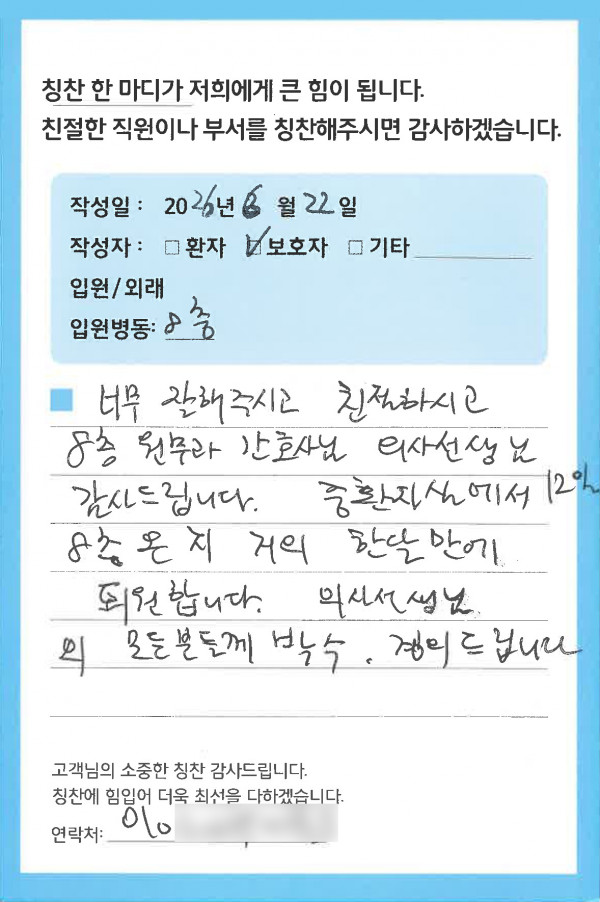 칭찬 한 마디가 저희에게 큰 힘이 됩니다.
친절한 직원이나 부서를 칭찬해주시면 감사하겠습니다.
작성일 : 2026년 6월 22일
작성자 : □ 환자 ☑ 보호자 □ 기타
입원/외래
입원병동: 8층
너무 잘해주시고 친절하시고
8층 원무과 간호사님 의사선생님
감사드립니다. 중환자실에서 12일
8층 온지 거의 한달만에
퇴원합니다. 의사선생님
외 모든분들께 박수. 경의드립니다
고객님의 소중한 칭찬 감사드립니다.
칭찬에 힘입어 더욱 최선을 다하겠습니다.
연락처: 010